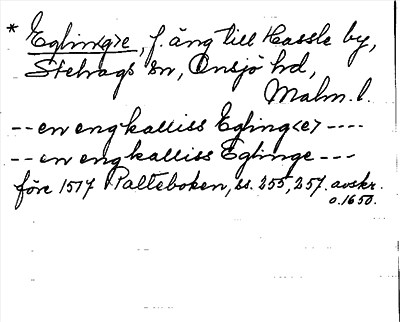 * Egling<e>, f. äng till Hassle by,
Stehags sn, Onsjö hd,
Malm. l.
-- en eng kalliss Egling<e> ----
-- en eng kalliss Eglinge ---
före 1517 Palteboken, ss. 255, 257. avskr.
o. 1650.